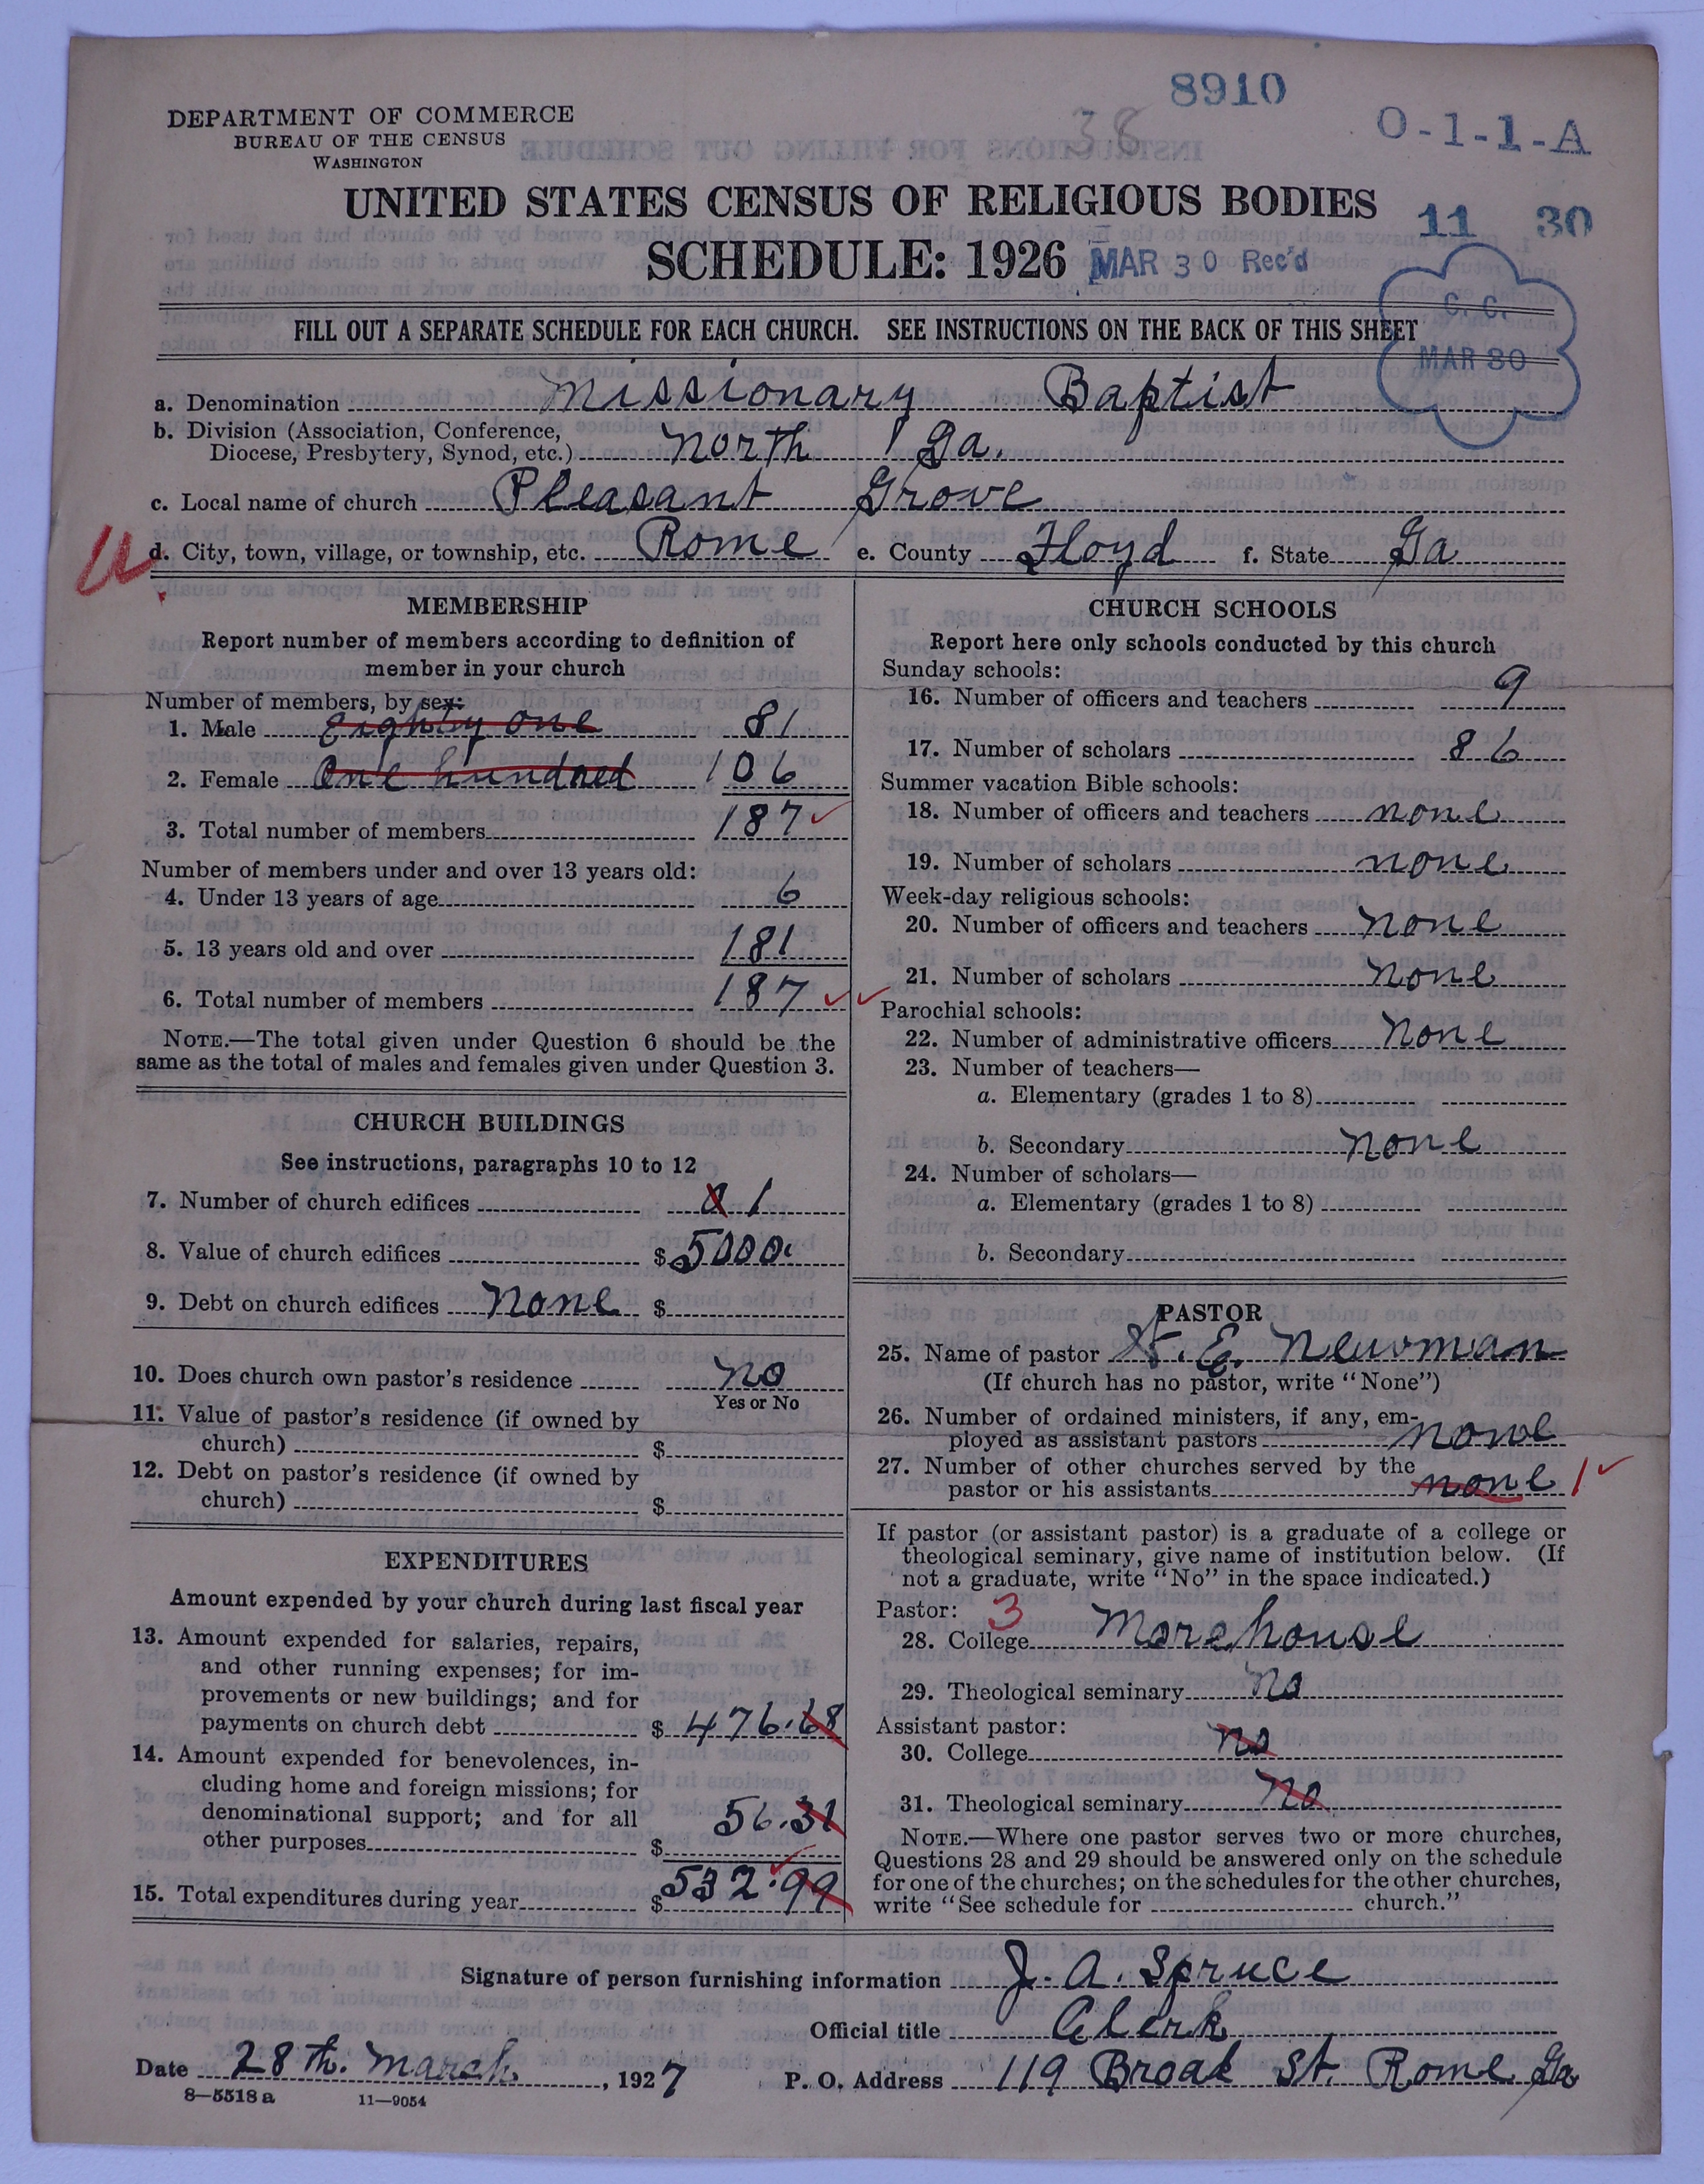 8910
38
O-1-1-A
DEPARTMENT OF COMMERCE
BUREAU OF THE CENSUS
WASHINGTON
UNITED STATES CENSUS OF RELIGIOUS BODIES
11 30
SCHEDULE: 1926 MAR 30 Rec'd
C. C.
MAR 30
FILL OUT A SEPARATE SCHEDULE FOR EACH CHURCH. SEE INSTRUCTIONS ON THE BACK OF THIS SHEET
a. Denomination Missionary Baptist
b. Division (Association, Conference,
Diocese, Presbytery, Synod, etc.) North Ga.
c. Local name of church Pleasant Grove
d. City, town, village, or township, etc. Rome e. County Floyd f. State Ga
MEMBERSHIP
Report number of members according to definition of
member in your church
Number of members, by sex:
1. Male Eighty one 81
2. Female One hundred 106
3. Total number of members 187
Number of members under and over 13 years old:
4. Under 13 years of age 6
5. 13 years old and over 181
6. Total number of members 187
NOTE.—The total given under Question 6 should be the
same as the total of males and females given under Question 3.
CHURCH BUILDINGS
See instructions, paragraphs 10 to 12
7. Number of church edifices 1
8. Value of church edifices $ 5000.
9. Debt on church edifices None $
10. Does church own pastor's residence No
Yes or No
11. Value of pastor's residence (if owned by
church) $
12. Debt on pastor's residence (if owned by
church) $
EXPENDITURES
Amount expended by your church during last fiscal year
13. Amount expended for salaries, repairs,
and other running expenses; for im-
provements or new buildings; and for
payments on church debt $ 476.68
14. Amount expended for benevolences, in-
cluding home and foreign missions; for
denominational support; and for all
other purposes $ 56.31
15. Total expenditures during year $ 532.99
CHURCH SCHOOLS
Report here only schools conducted by this church
Sunday schools:
16. Number of officers and teachers 9
17. Number of scholars 86
Summer vacation Bible schools:
18. Number of officers and teachers none
19. Number of scholars none
Week-day religious schools:
20. Number of officers and teachers None
21. Number of scholars None
Parochial schools:
22. Number of administrative officers None
23. Number of teachers—
a. Elementary (grades 1 to 8)
b. Secondary None
24. Number of scholars—
a. Elementary (grades 1 to 8)
b. Secondary
PASTOR
25. Name of pastor E. Newman
(If church has no pastor, write "None")
26. Number of ordained ministers, if any, em-
ployed as assistant pastors None
27. Number of other churches served by the
pastor or his assistants none 1
If pastor (or assistant pastor) is a graduate of a college or
theological seminary, give name of institution below. (If
not a graduate, write "No" in the space indicated.)
Pastor: 3
28. College Morehouse
29. Theological seminary No
Assistant pastor:
30. College no
31. Theological seminary No
NOTE.—Where one pastor serves two or more churches,
Questions 28 and 29 should be answered only on the schedule
for one of the churches; on the schedules for the other churches,
write "See schedule for church."
Signature of person furnishing information J. A. Spruce
Official title Clerk
Date 28th. March, 1927 P. O. Address 119 Broad St. Rome Ga
8—5518a 11—9054